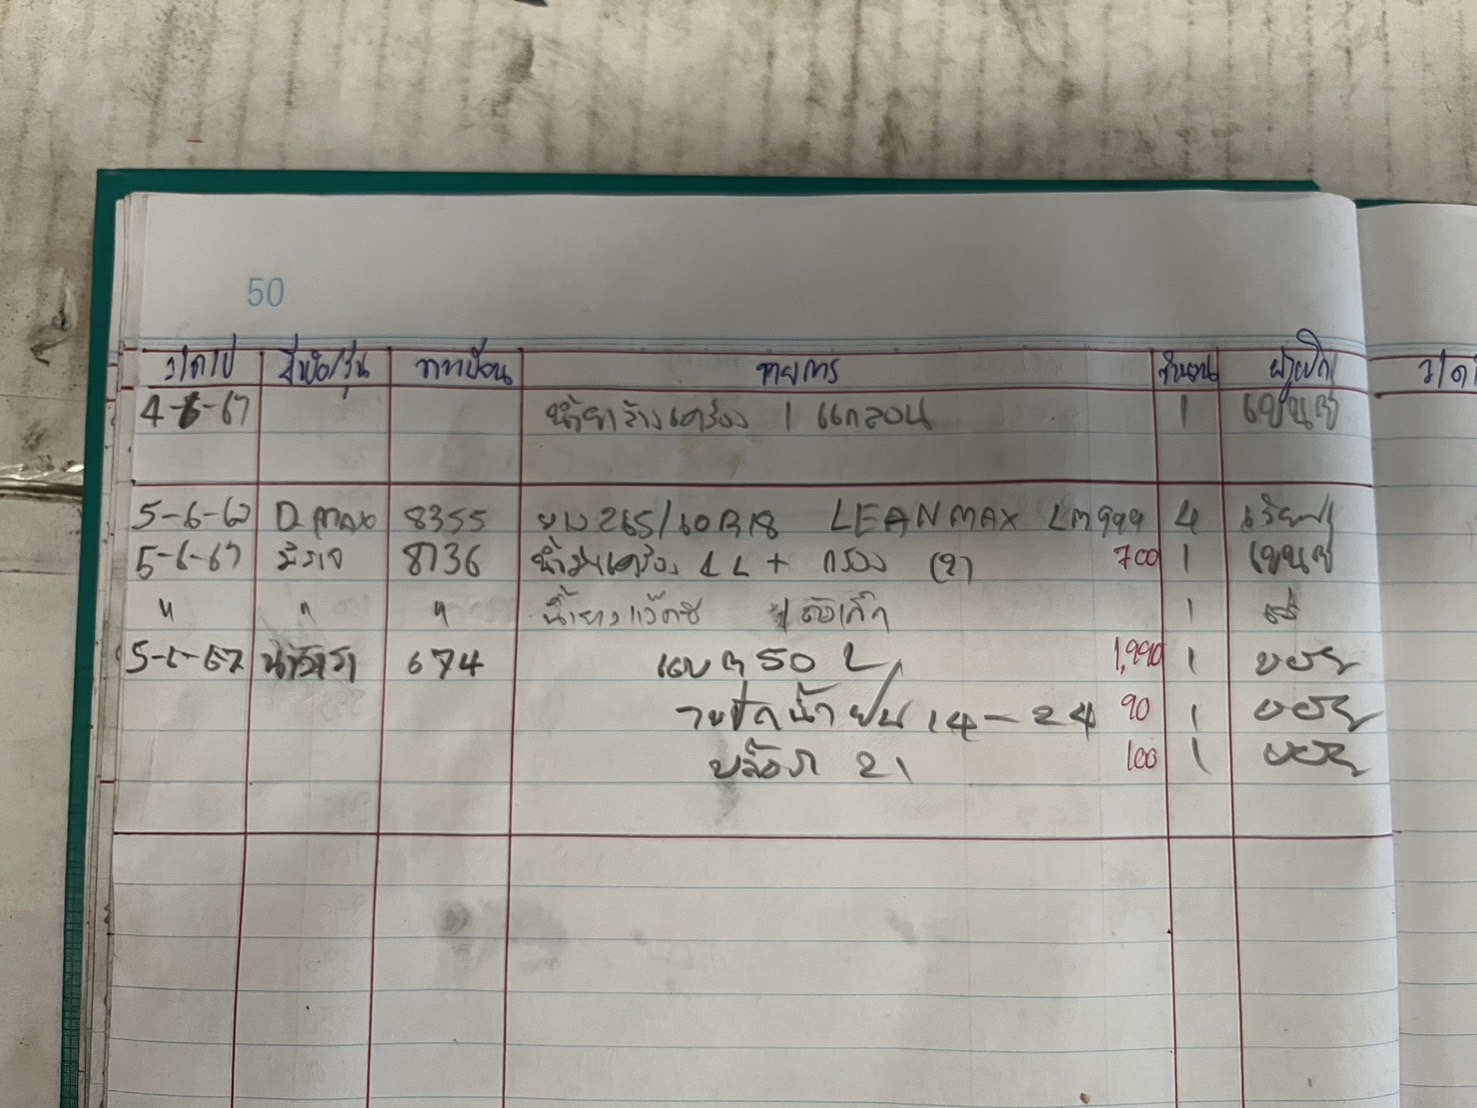 50
ว/ด/ป ยี่ห้อ/รุ่น ทะเบียน รายการ จำนวน ผู้เบิก ว/ด/
4-6-67 น้ำยาล้างเครื่อง 1 แกลอน 1
5-6-67 D.max 8355 ยาง 265/60R18 LEANMAX LM999 4
5-6-67 มิราจ 8736 น้ำมันเครื่อง 4L + กรอง (2) 700 1
" " " น้ำยาแว๊กซ์ 1
5-6-67 นาวาร่า 674 แบต 50 L 1,990 1
ใบปัดน้ำฝน 14-24 90 1
บล๊อก 21 100 1